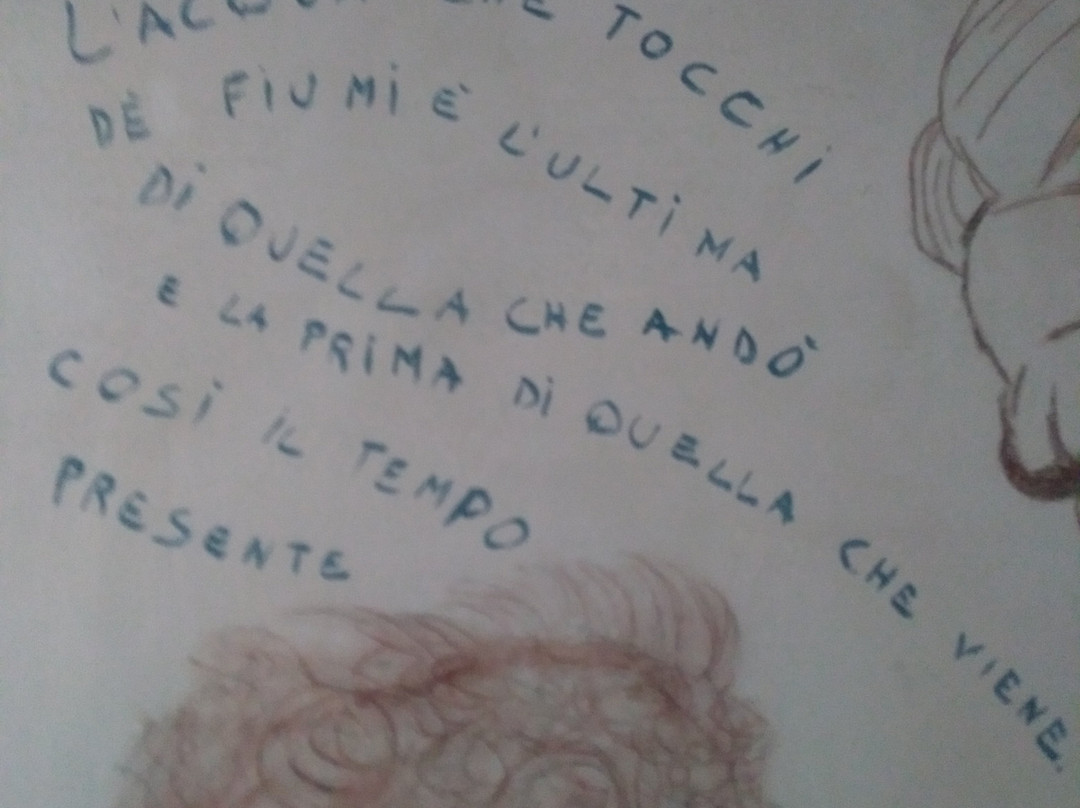 L'ACQUA CHE TOCCHI
DÈ FIUMI È L'ULTIMA
DI QUELLA CHE ANDÒ
E LA PRIMA DI QUELLA CHE VIENE.
COSÌ IL TEMPO
PRESENTE